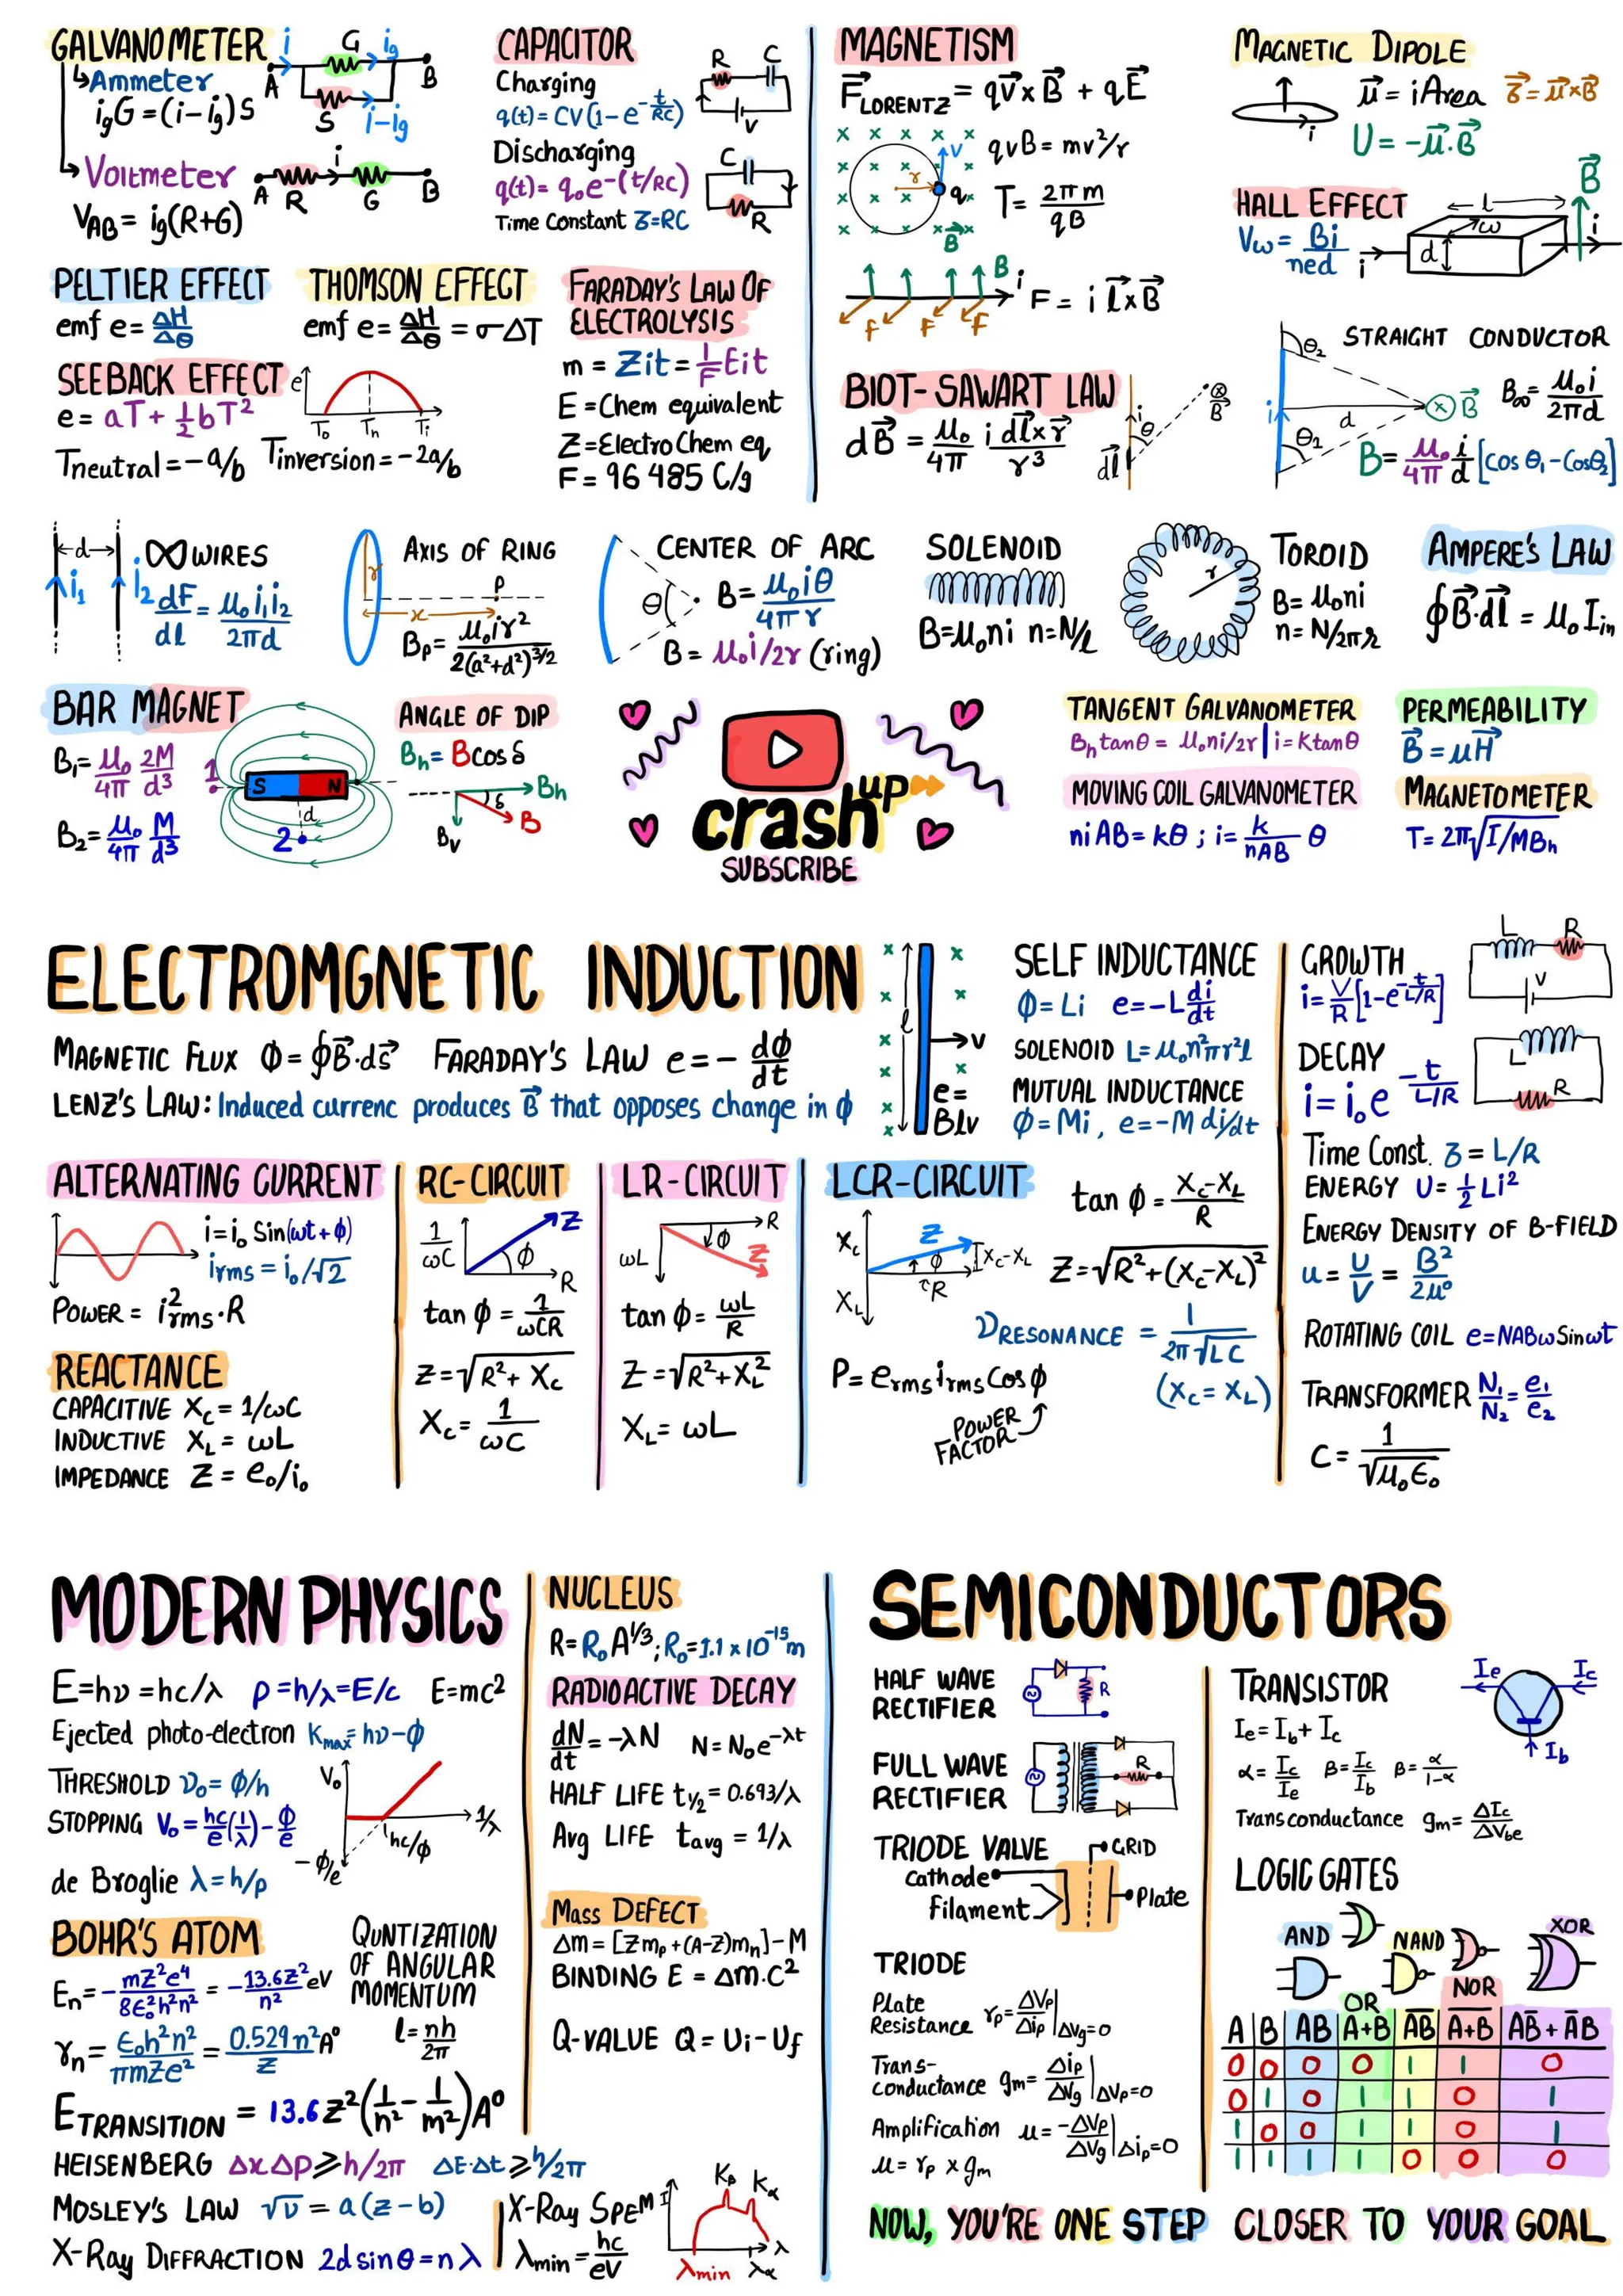 GALVANOMETER
↳Ammeter
i_g G = (i-i_g)S
i G i_g
A B
S i-i_g
↳Voltmeter
A R i G B
V_AB = i_g(R+G)
CAPACITOR
Charging
q(t) = CV(1-e^-t/RC)
R C
V
Discharging
q(t) = q₀e^-(t/RC)
Time Constant τ=RC
C
R
PELTIER EFFECT
emf e = ΔH/Δθ
THOMSON EFFECT
emf e = ΔH/Δθ = σΔT
SEEBACK EFFECT
e = aT + ½bT²
e
T₀ Tn Ti
Tneutral = -a/b Tinversion = -2a/b
FARADAY'S LAW OF
ELECTROLYSIS
m = Zit = 1/F Eit
E = Chem equivalent
Z = ElectroChem eq
F = 96485 C/g
MAGNETISM
F⃗_LORENTZ = qv⃗×B⃗ + qE⃗
qvB = mv²/r
T = 2πm/qB
v r q B⃗
B i
F F F
F = i l⃗×B⃗
BIOT-SAWART LAW
dB⃗ = μ₀/4π i dl⃗×r⃗/r³
i θ dl⃗ ⊗ B⃗
MAGNETIC DIPOLE
μ⃗ = iArea τ⃗ = μ⃗×B⃗
U = -μ⃗.B⃗
i
HALL EFFECT
V_w = Bi/ned
l w d i i B⃗
STRAIGHT CONDUCTOR
B∞ = μ₀i/2πd
B = μ₀/4π i/d [cos θ₁-Cosθ₂]
θ₂ i d ⊗ B⃗ θ₂
∞ WIRES
←d→ i₁ i₂
dF/dl = μ₀i₁i₂/2πd
AXIS OF RING
r x P
Bp = μ₀ir²/2(a²+d²)^3/2
CENTER OF ARC
θ B = μ₀iθ/4πr
B = μ₀i/2r (ring)
SOLENOID
B=μ₀ni n=N/l
TOROID
r
B = μ₀ni
n = N/2πr
AMPERE'S LAW
∮B⃗·dl⃗ = μ₀I_in
BAR MAGNET
B₁ = μ₀/4π 2M/d³
B₂ = μ₀/4π M/d³
1 S N
d
2
ANGLE OF DIP
B_h = Bcosδ
B_h δ B B_v
crash up
SUBSCRIBE
TANGENT GALVANOMETER
B_h tanθ = μ₀ni/2r | i = Ktanθ
MOVING COIL GALVANOMETER
niAB = kθ ; i = k/nAB θ
PERMEABILITY
B⃗ = μH⃗
MAGNETOMETER
T = 2π√I/MB_h
ELECTROMGNETIC INDUCTION
MAGNETIC FLUX ϕ = ∮B⃗·ds⃗ FARADAY'S LAW e = - dϕ/dt
LENZ'S LAW: Induced currenc produces B⃗ that opposes change in ϕ
l → v
e =
Blv
SELF INDUCTANCE
ϕ = Li e = -L di/dt
SOLENOID L = μ₀n²πr²l
MUTUAL INDUCTANCE
ϕ = Mi, e = -M di/dt
GROWTH
i = V/R [1-e^-t/L/R]
L R
V
DECAY
i = i₀e^-t/L/R
L
R
Time Const. τ = L/R
ENERGY U = ½Li²
ENERGY DENSITY OF B-FIELD
u = U/V = B²/2μ⁰
ROTATING COIL e=NABωSinωt
TRANSFORMER N₁/N₂ = e₁/e₂
C = 1/√μ₀ϵ₀
ALTERNATING CURRENT
i = i₀ Sin(ωt + ϕ)
i_rms = i₀/√2
POWER = i²rms·R
REACTANCE
CAPACITIVE X_C = 1/ωC
INDUCTIVE X_L = ωL
IMPEDANCE Z = e₀/i₀
RC-CIRCUIT
1/ωC Z ϕ R
tan ϕ = 1/ωCR
Z = √R²+X_C
X_C = 1/ωC
LR-CIRCUIT
R ωL ϕ Z
tan ϕ = ωL/R
Z = √R²+X_L²
X_L = ωL
LCR-CIRCUIT
X_C Z ϕ X_C-X_L R X_L
tan ϕ = X_C-X_L/R
Z = √R²+(X_C-X_L)²
ν_RESONANCE = 1/2π√LC
(X_C = X_L)
P = e_rms i_rms Cos ϕ
POWER
FACTOR
MODERN PHYSICS
E=hν = hc/λ p = h/λ = E/c E=mc²
Ejected photo-electron K_max = hν-ϕ
THRESHOLD ν₀ = ϕ/h
STOPPING V₀ = hc/e(1/λ) - ϕ/e
V₀ 1/λ hc/ϕ -ϕ/e
de Broglie λ = h/p
BOHR'S ATOM
En = -mZ²e⁴/8ϵ₀²h²n² = -13.6Z²/n² eV
r_n = ϵ₀h²n²/πmZe² = 0.529n²/Z A°
QUNTIZATION
OF ANGULAR
MOMENTUM
l = nh/2π
E_TRANSITION = 13.6Z²(1/n² - 1/m²)A°
HEISENBERG ΔxΔp ≥ h/2π ΔE·Δt ≥ h/2π
MOSLEY'S LAW √ν = a(z-b)
X-Ray DIFFRACTION 2d sinθ = nλ
X-Ray SPEM
λ_min = hc/eV
I Kβ Kα λ
λ_min λα
NUCLEUS
R = R₀A^1/3; R₀ = 1.1×10⁻¹⁵m
RADIOACTIVE DECAY
dN/dt = -λN N = N₀e^-λt
HALF LIFE t½ = 0.693/λ
Avg LIFE t_avg = 1/λ
Mass DEFECT
Δm = [Zm_p+(A-Z)m_n]-M
BINDING E = Δm.C²
Q-VALUE Q = Ui - Uf
SEMICONDUCTORS
HALF WAVE
RECTIFIER
R
FULL WAVE
RECTIFIER
R
TRIODE VALVE
GRID
Cathode
Filament
Plate
TRIODE
Plate
Resistance r_p = ΔVp/Δip |ΔVg=0
Trans-
conductance g_m = Δip/ΔVg |ΔVp=0
Amplification μ = -ΔVp/ΔVg |Δip=0
μ = r_p × g_m
TRANSISTOR
Ie Ic
Ib
Ie = Ib + Ic
α = Ic/Ie β = Ic/Ib β = α/1-α
Transconductance g_m = ΔIc/ΔVbe
LOGIC GATES
AND NAND XOR
OR NOR
A B AB A+B A̅B̅ A̅+̅B̅ AB̅ + A̅B
0 0 0 0 1 1 0
0 1 0 1 1 0 1
1 0 0 1 1 0 1
1 1 1 1 0 0 0
NOW, YOU'RE ONE STEP CLOSER TO YOUR GOAL